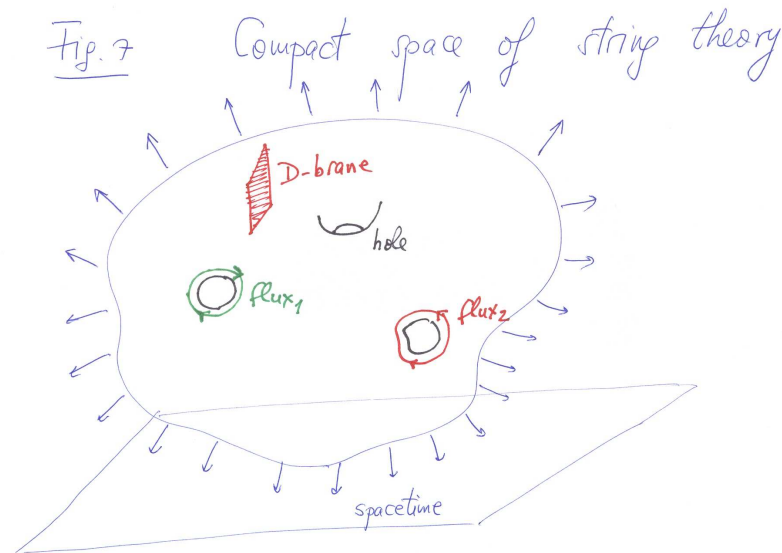 Fig. 7 Compact space of string theory
D-brane
hole
flux1
flux2
spacetime